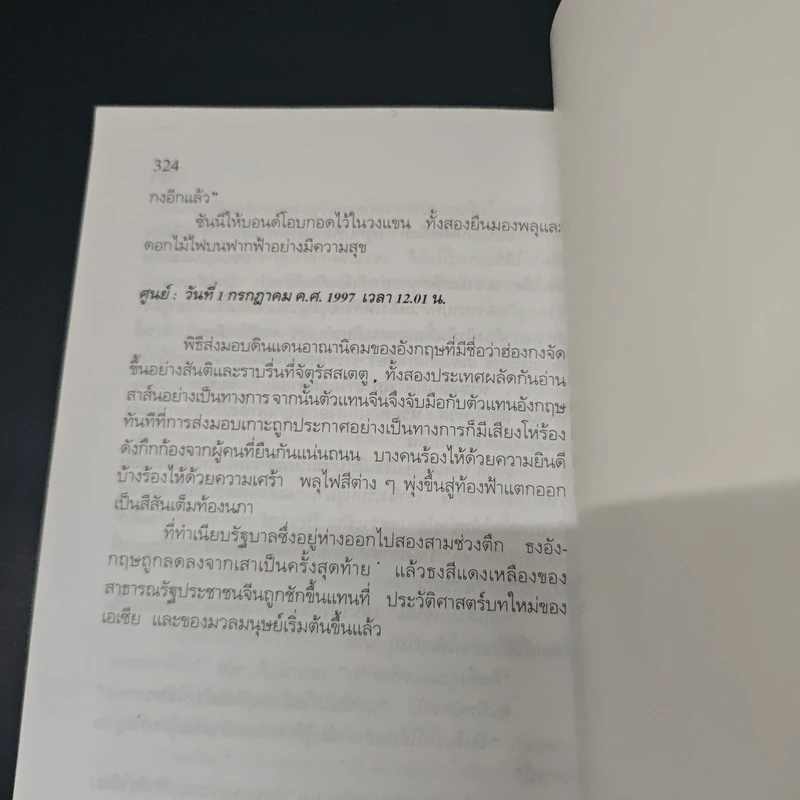 324
กงอีกแล้ว"
ซันนี่ให้บอนด์โอบกอดไว้ในวงแขน ทั้งสองยืนมองพลุและ
ดอกไม้ไฟบนฟากฟ้าอย่างมีความสุข
ศูนย์ : วันที่ 1 กรกฎาคม ค.ศ. 1997 เวลา 12.01 น.
พิธีส่งมอบดินแดนอาณานิคมของอังกฤษที่มีชื่อว่าฮ่องกงจัด
ขึ้นอย่างสันติและราบรื่นที่จัตุรัสสเตตู ทั้งสองประเทศผลัดกันอ่าน
สาส์นอย่างเป็นทางการ จากนั้นตัวแทนจีนจึงจับมือกับตัวแทนอังกฤษ
ทันทีที่การส่งมอบเกาะถูกประกาศอย่างเป็นทางการก็มีเสียงโห่ร้อง
ดังกึกก้องจากผู้คนที่ยืนกันแน่นถนน บางคนร้องไห้ด้วยความยินดี
บ้างร้องไห้ด้วยความเศร้า พลุไฟสีต่าง ๆ พุ่งขึ้นสู่ท้องฟ้าแตกออก
เป็นสีสันเต็มท้องนภา
ที่ทำเนียบรัฐบาลซึ่งอยู่ห่างออกไปสองสามช่วงตึก ธงอัง-
กฤษถูกลดลงจากเสาเป็นครั้งสุดท้าย แล้วธงสีแดงเหลืองของ
สาธารณรัฐประชาชนจีนถูกชักขึ้นแทนที่ ประวัติศาสตร์บทใหม่ของ
เอเชีย และของมวลมนุษย์เริ่มต้นขึ้นแล้ว